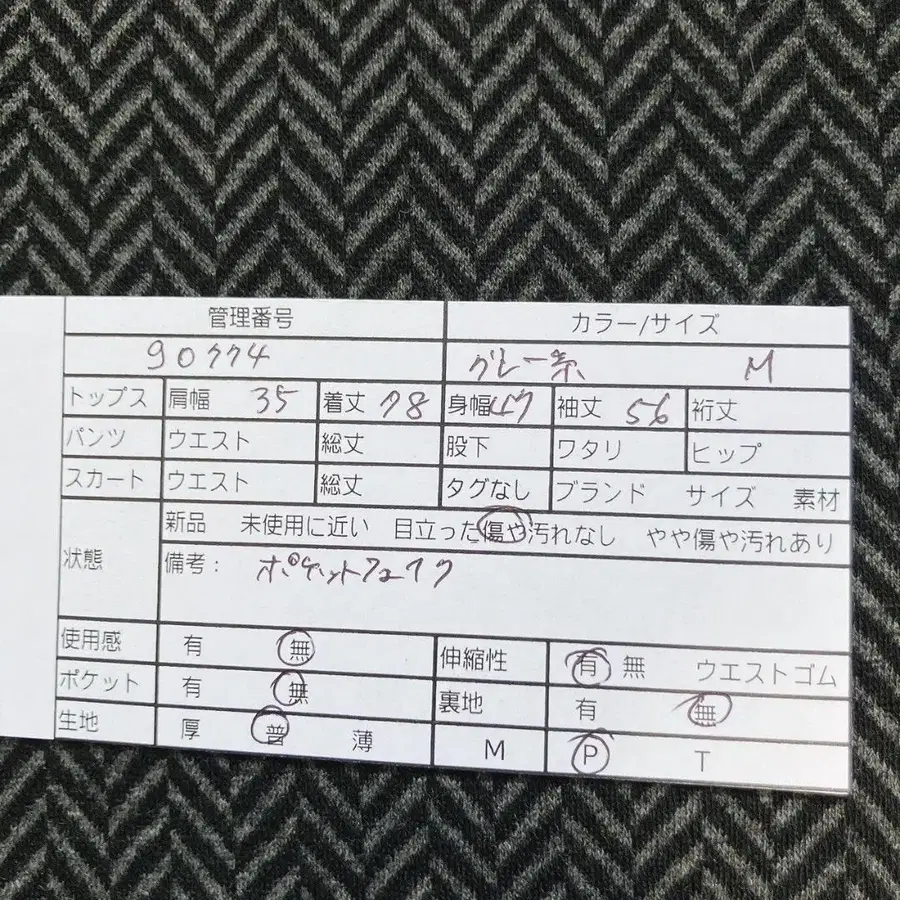 管理番号 カラー/サイズ
90774 グレー系 M
トップス 肩幅 35 着丈 78 身幅 47 袖丈 56 裄丈
パンツ ウエスト 総丈 股下 ワタリ ヒップ
スカート ウエスト 総丈 タグなし ブランド サイズ 素材
状態 新品 未使用に近い 目立った傷や汚れなし やや傷や汚れあり
備考: ポケットフェイク
使用感 有 無 伸縮性 有 無 ウエストゴム
ポケット 有 無 裏地 有 無
生地 厚 普 薄 M P T